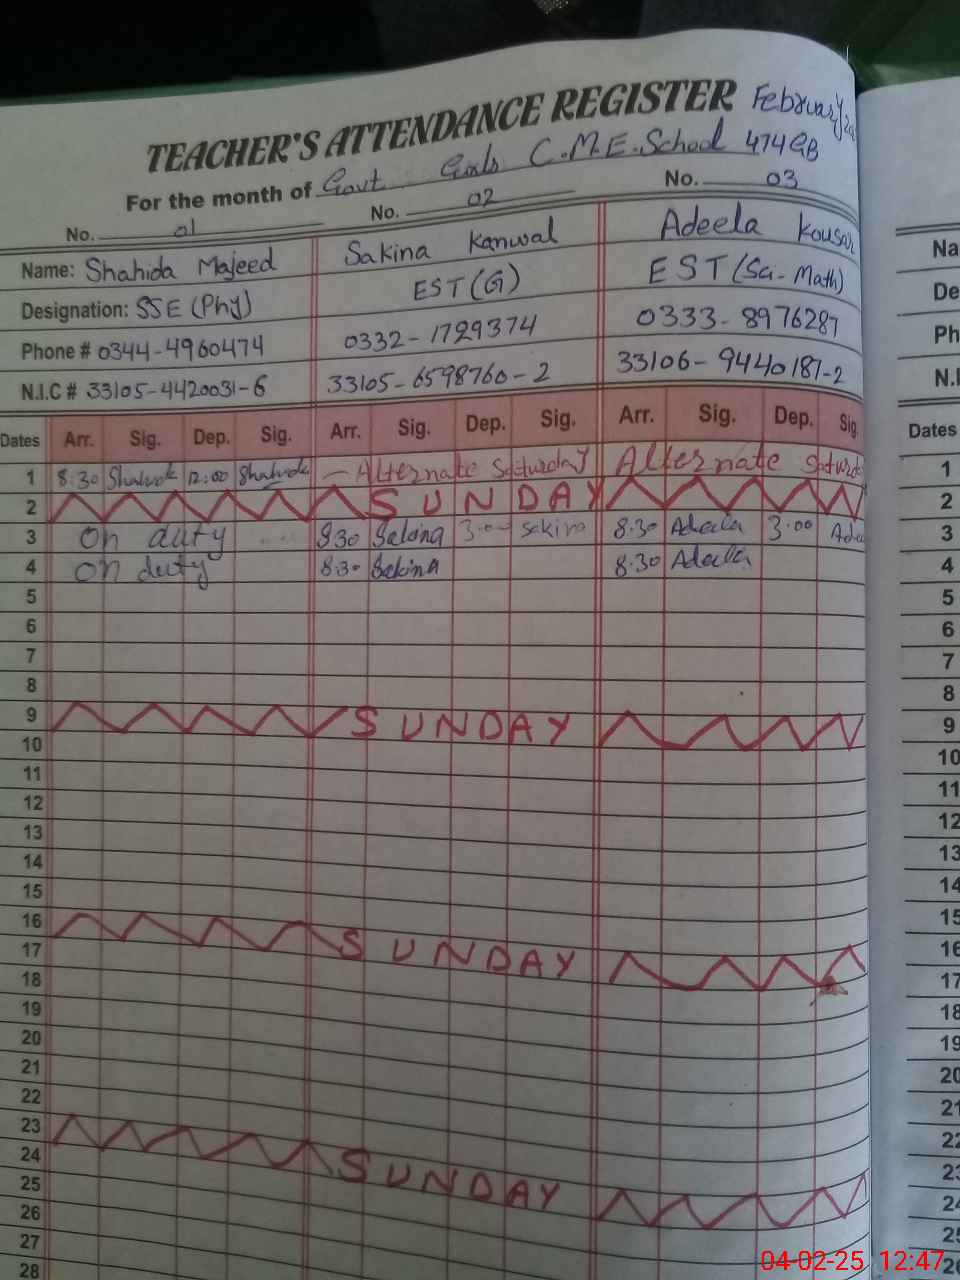 TEACHER'S ATTENDANCE REGISTER February
For the month of Govt Girls C.M.E.School 474GB
No. 01 No. 02 No. 03
Name: Shahida Majeed Sakina Kanwal Adeela Kousar
Designation: SSE (Phy) EST (G) EST (Sci-Math)
Phone # 0344-4960474 0332-1729374 0333-8976287
N.I.C # 33105-4420031-6 33105-6598760-2 33106-9440187-2
Dates Arr. Sig. Dep. Sig. Arr. Sig. Dep. Sig. Arr. Sig. Dep. Sig.
1 8:30 12:00 Alternate Saturday Alternate
2 SUNDAY
3 On duty 830 3:00 Sakina 8:30 Adeela 3:00 Ade
4 On duty 8:30 Sakina 8:30 Adeela
5
6
7
8
9 SUNDAY
10
11
12
13
14
15
16 SUNDAY
17
18
19
20
21
22
23 SUNDAY
24
25
26
27
28
Na
De
Ph
N.I
Dates
1
2
3
4
5
6
7
8
9
10
11
12
13
14
15
16
17
18
19
20
21
22
23
24
25
04-02-25 12:47